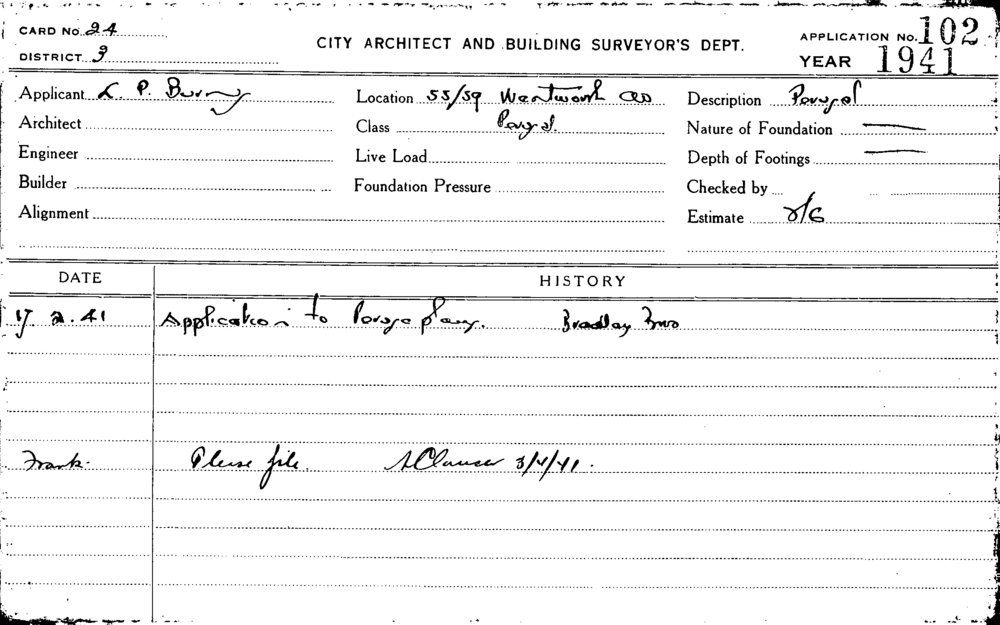 CARD No. 24
DISTRICT 3
CITY ARCHITECT AND BUILDING SURVEYOR'S DEPT.
APPLICATION No. 102
YEAR 1941
Applicant L. P. Location 55/59 Wentworth Description
Architect Class Nature of Foundation —
Engineer Live Load Depth of Footings —
Builder Foundation Pressure Checked by
Alignment Estimate 2/6
DATE HISTORY
17 2. 41 Application to Bradley Bros
Frank. Please file. 3/4/41.